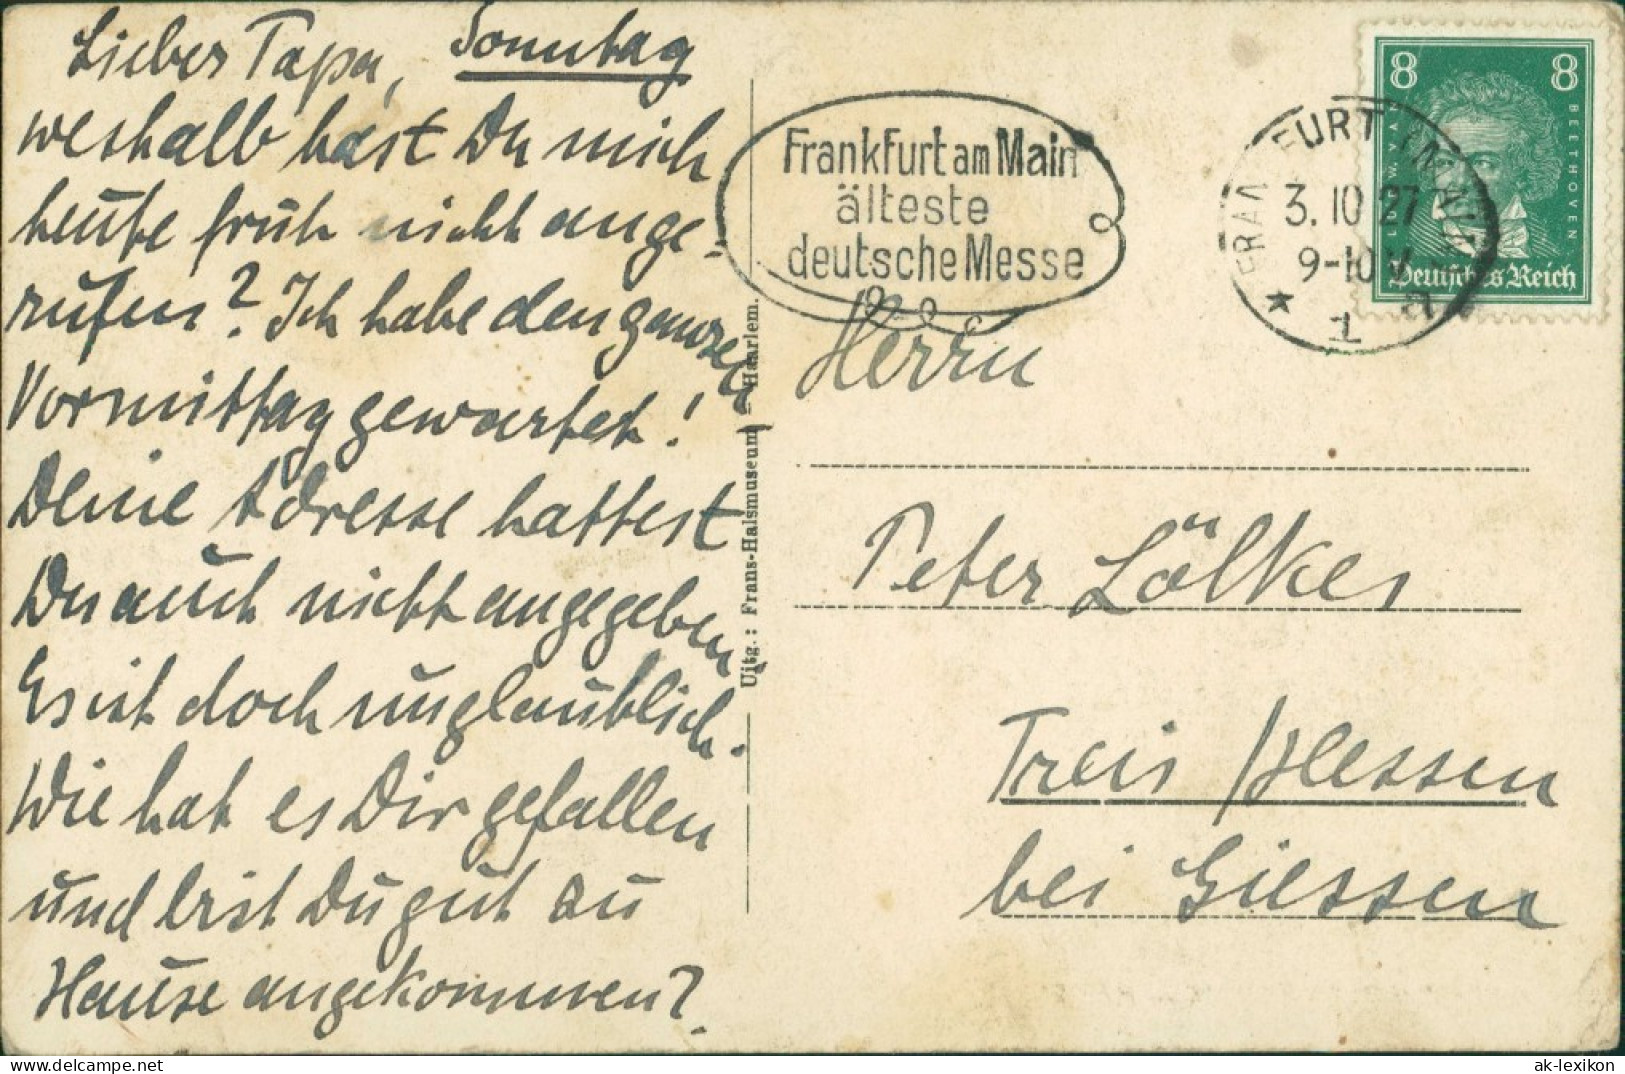 Sonntag
Lieber Papa,
weshalb hast Du mich
heute früh nicht ange-
rufen? Ich habe den ganzen
Vormittag gewartet!
Deine Adresse hattest
Du auch nicht angegeben
Es ist doch unglaublich.
Wie hat es Dir gefallen
und bist Du gut zu
Hause angekommen?
Uitg.: Frans-Halsmuseum - Haarlem.
Frankfurt am Main
älteste
deutsche Messe
FRANKFURT (MAIN)
3.10.27
9-10 V
★ 1 n
8 8
LUDW. VAN
BEETHOVEN
Deutsches Reich
Herrn
Peter Lölkes
Treis / Hessen
bei Giessen
ak-lexikon